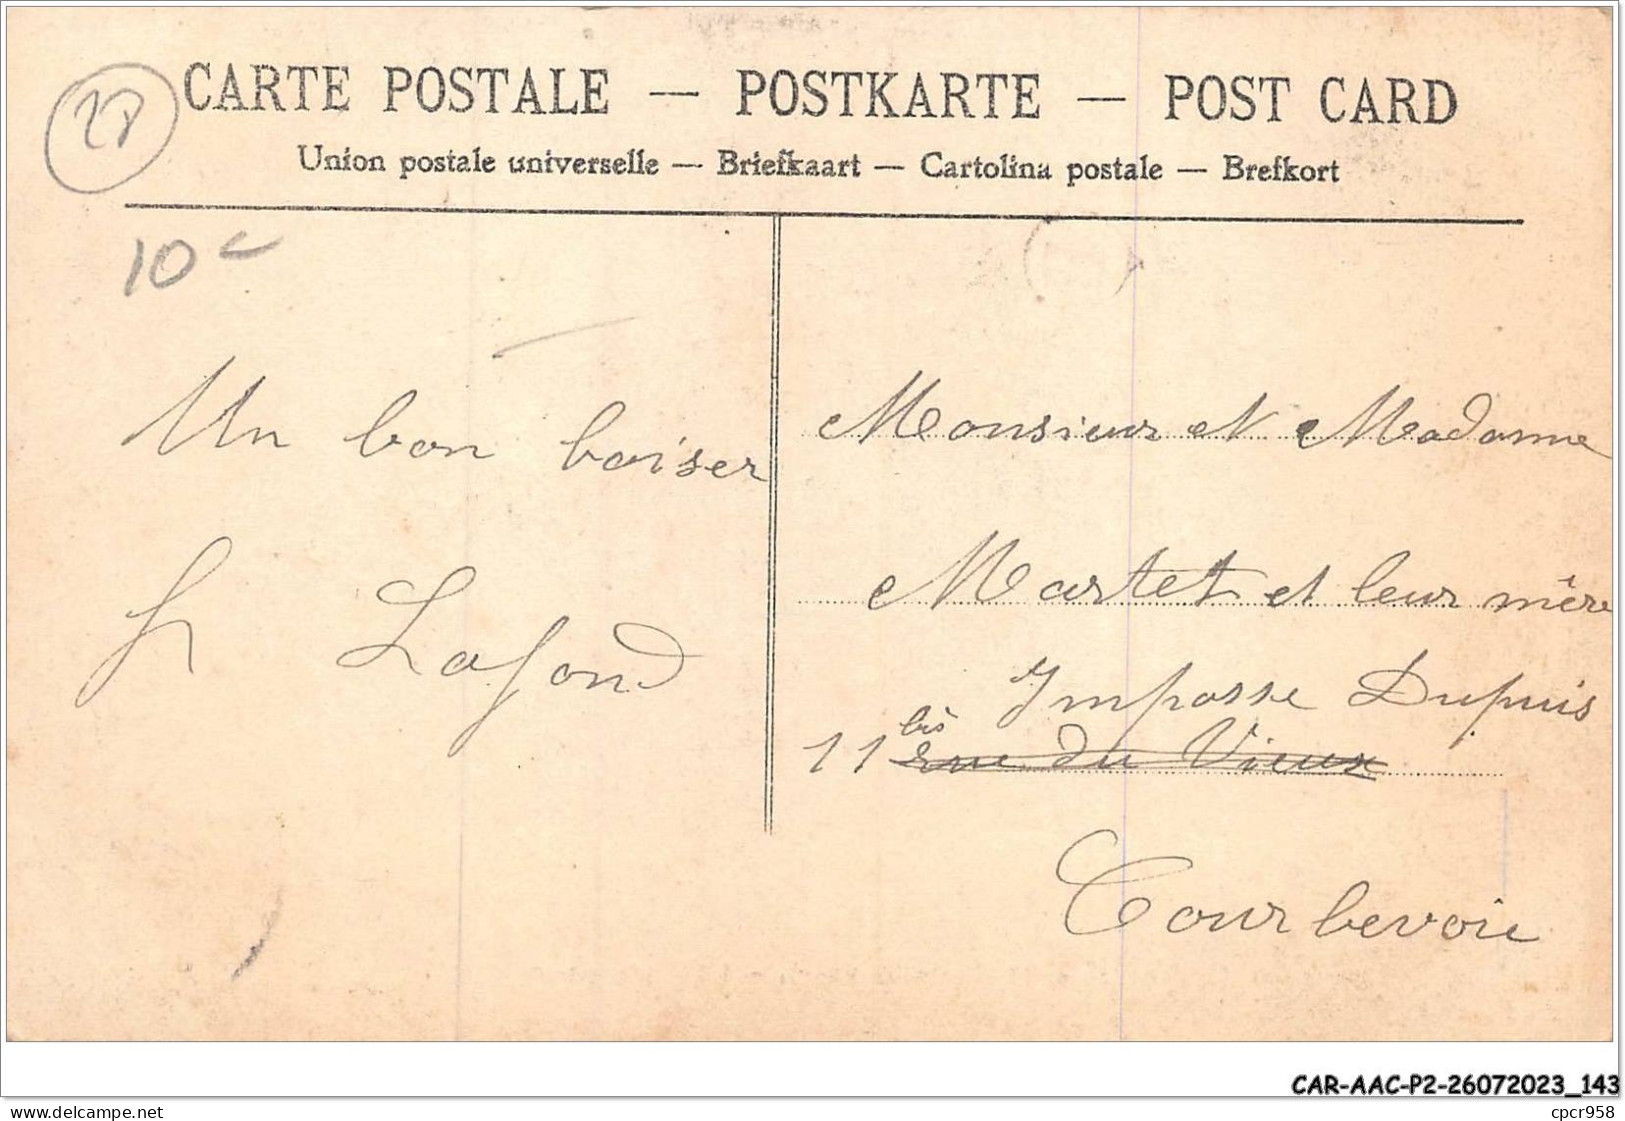 CARTE POSTALE — POSTKARTE — POST CARD
Union postale universelle — Briefkaart — Cartolina postale — Brefkort
10
Un bon baiser
Lafond
Monsieur et Madame
Martet et leur mère
Impasse Dupuis
11 bis rue du Vieux
Courbevoie
CAR-AAC-P2-26072023_143
www.delcampe.net
cpcr958